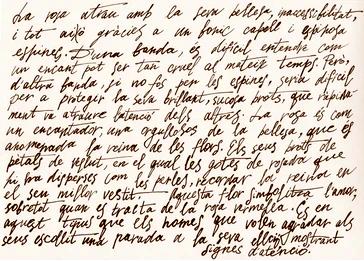 La rosa atrau amb la seva bellesa, inaccessibilitat
i tot això gràcies a un bonic capoll i espinosa
espines. D'una banda, és difícil entendre com
un encant pot ser tan cruel al mateix temps. Però,
d'altra banda, si no fos per les espines, seria difícil
per a protegir la seva brillant, sucosa brots, que ràpida-
ment va atraure l'atenció dels altres. La rosa és com
un encantador, una orgullosa de la bellesa, que és
anomenada la reina de les flors. Els seus brots de
pètals de vellut, en el qual les gotes de rosada que
hi ha disperses com les perles, recordar la reina en
el seu millor vestit. Aquesta flor simbolitza l'amor,
sobretot quan es tracta de la rosa vermella. És en
aquest tipus que els homes que volen agradar als
seus escollit una parada a la seva elecció, mostrant
signes d'atenció.